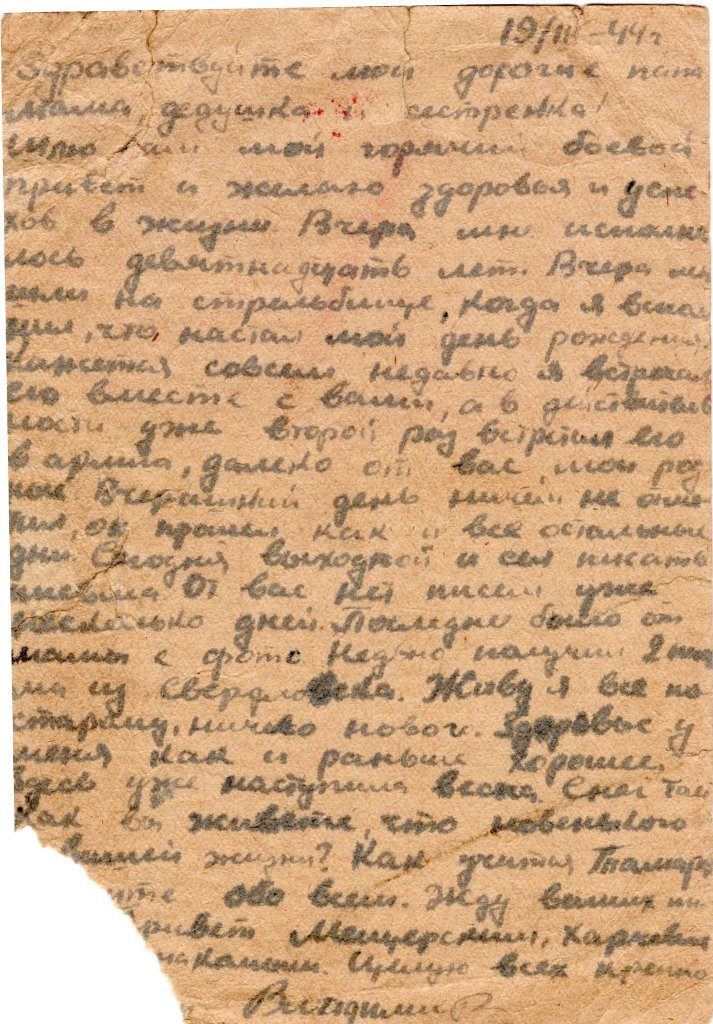 19/III-44г
Здравствуйте мои дорогие папа
мама, дедушка и сестренка!
Шлю вам мой горячий боевой
привет и желаю здоровья и успе-
хов в жизни. Вчера мне исполни
лось девятнадцать лет. Вчера мы
были на стрельбище, когда я вспом
нил, что настал мой день рождения,
кажется совсем недавно я встречал
его вместе с вами, а в действитель
ности уже второй раз встретил его
в армии, далеко от вас мои род
ные. Вчерашний день ничем не отме
тил, он прошел как и все остальные
дни. Сегодня выходной и сел писать
письма. От вас нет писем уже
несколько дней. Последнее было от
мамы с фото. Недавно получил 2 пись
ма из Свердловска. Живу я все по
старому, ничего нового. Здоровье у
меня как и раньше хорошее.
Здесь уже наступила весна. Снег тает
Как вы живете, что новенького
вашей жизни? Как учится Тамара
ите обо всем. Жду ваших пи
Привет Мещерским, Харченко
накомым. Целую всех крепко
Владимир